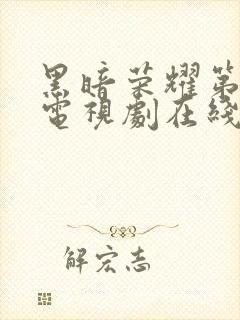 黑暗荣耀第
電視劇在綫
解宏志